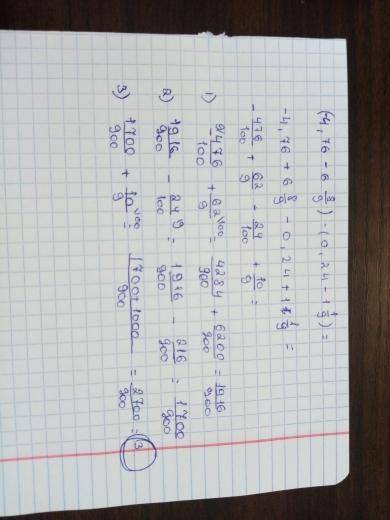 (-4,76 - 6 8/9) - (0,24 - 1 1/9) =
-4,76 + 6 8/9 - 0,24 + 1 1/9 =
- 476/100 + 62/9 - 24/100 + 10/9 =
1) - 476/100 + 62/9 = 4284/900 + 6200/900 = 1916/900
2) 1916/900 - 24/100 = 1916/900 - 216/900 = 1700/900
3) 1700/900 + 10/9 = 1700+1000/900 = 2700/900 = 3